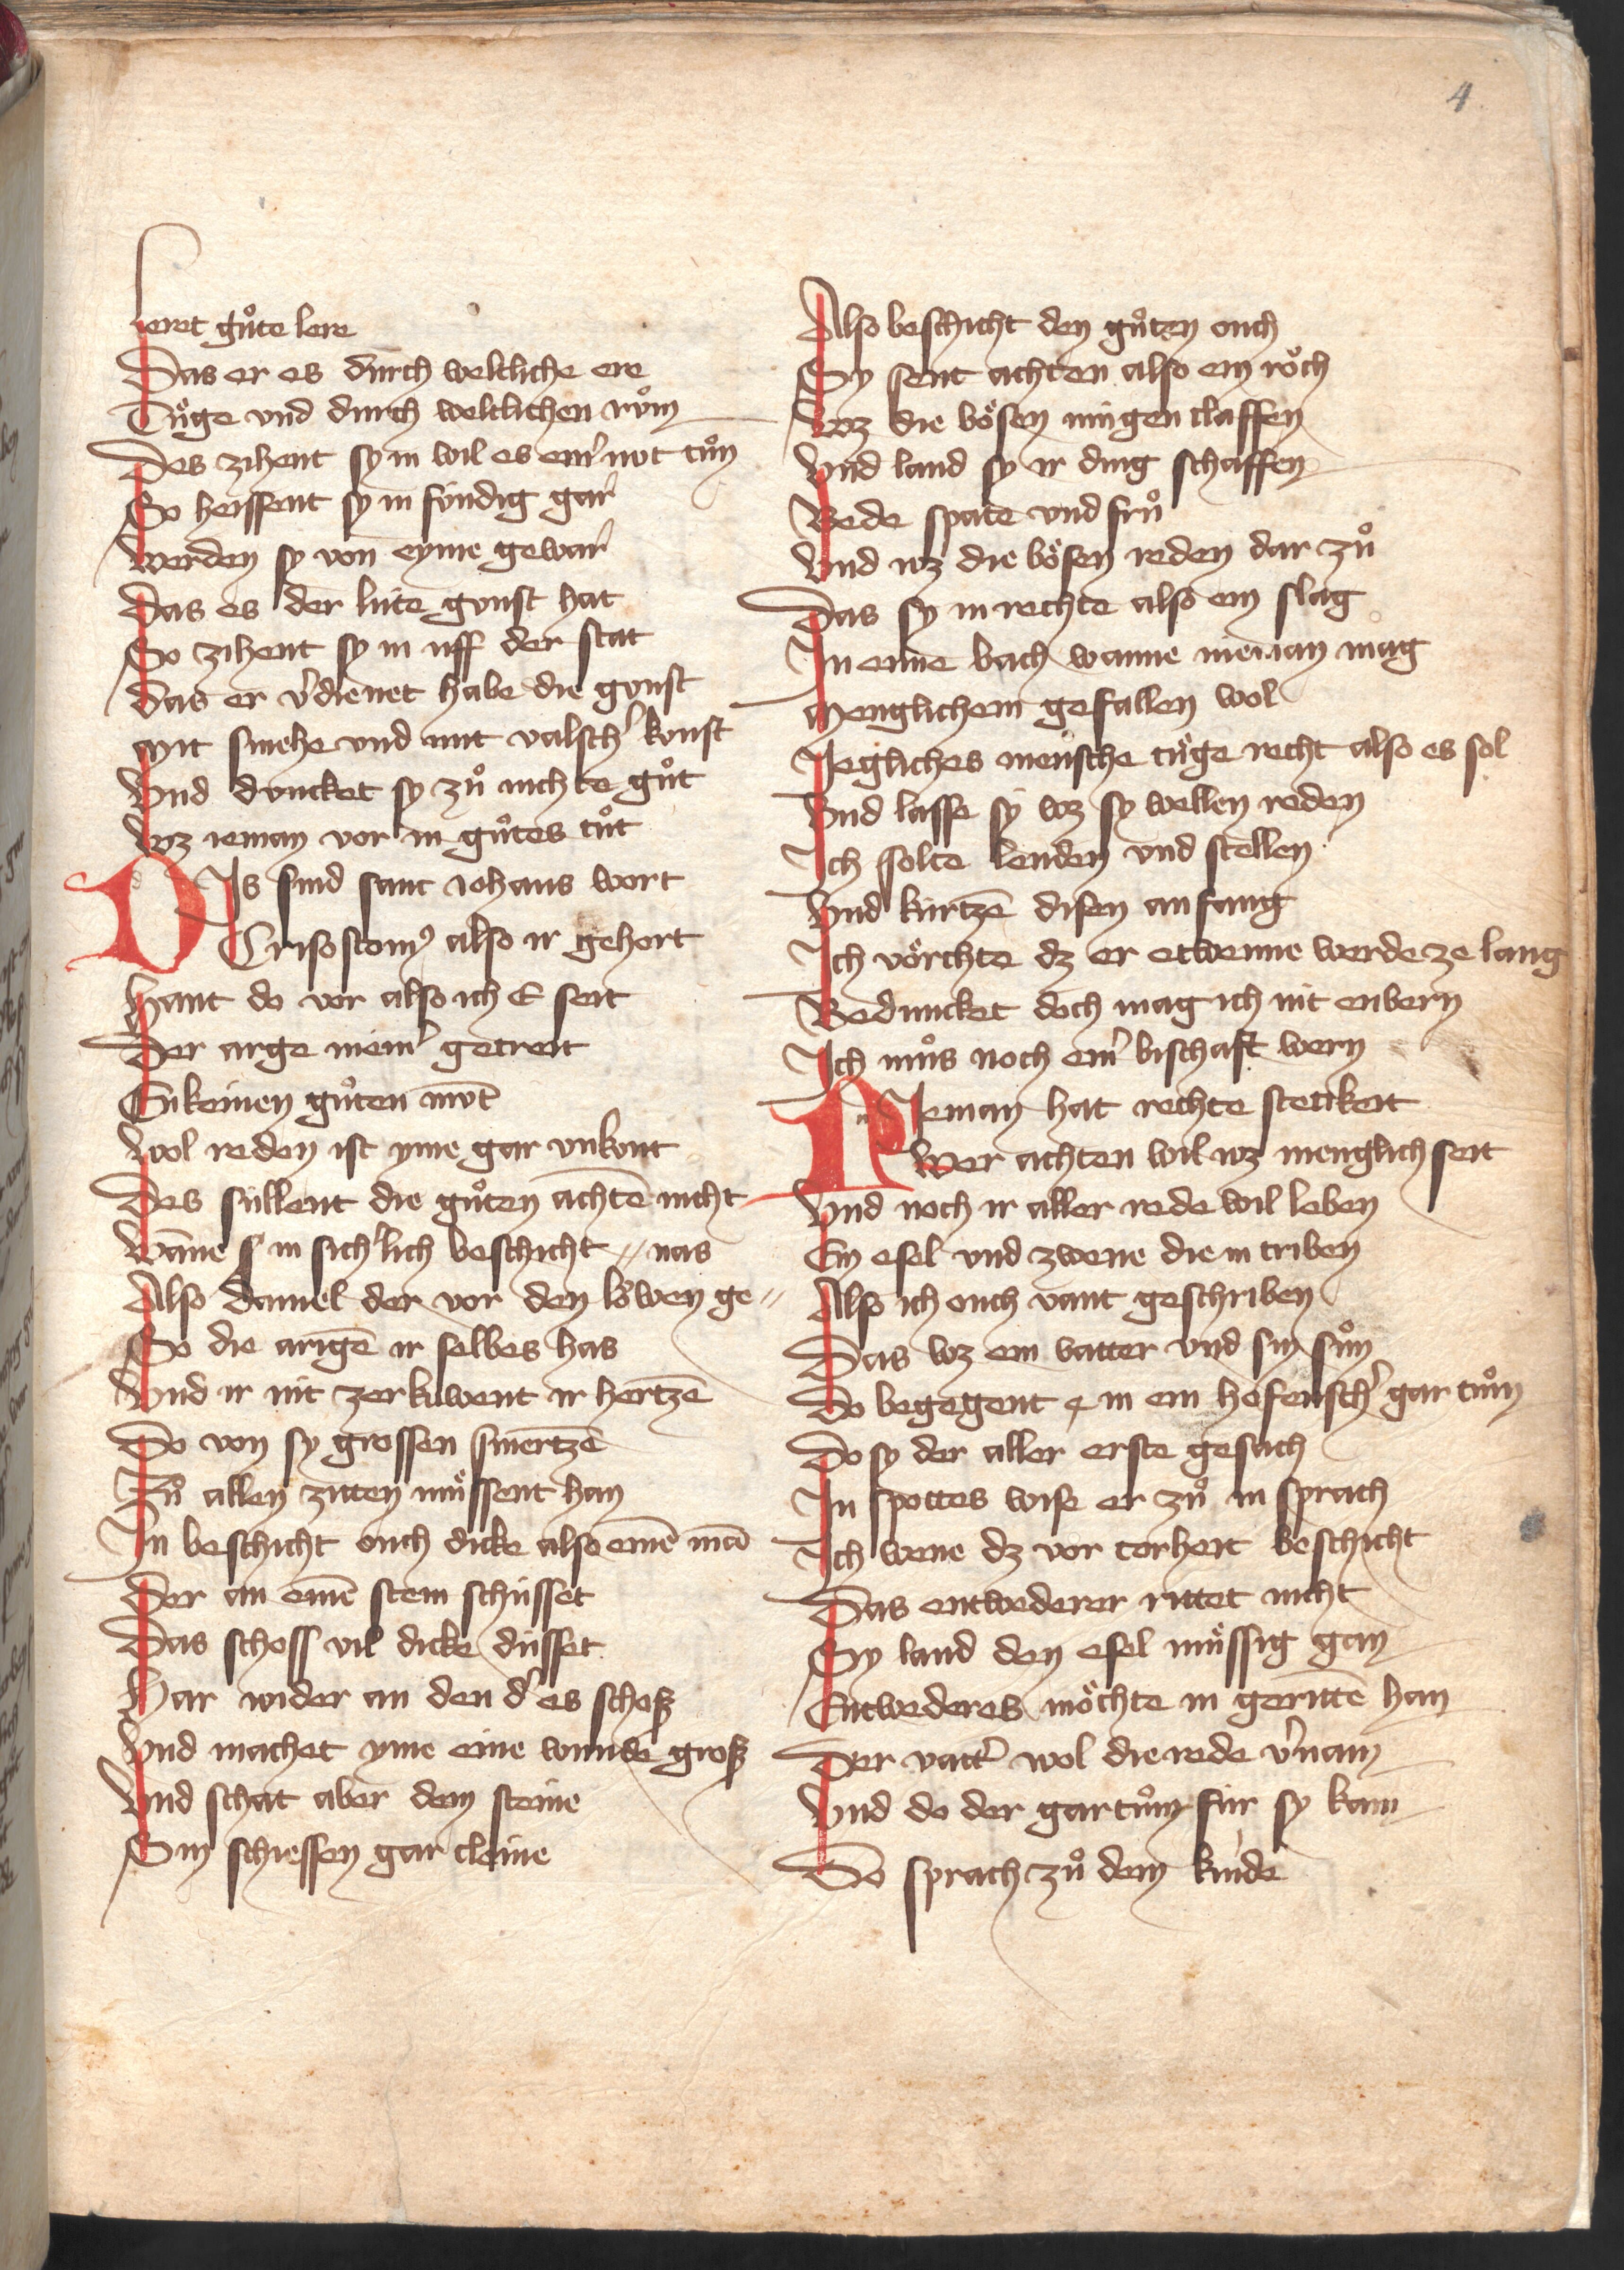 4
leret gůte lere
Das er es durch weltliche ere
Tuͤge vnd durch weltlichen rům
Des zihent sy in wil es em̾ not tůn
So heissent sy in súndig gar
Werden sy von eyme gewar
Das es der lúte gunst hat
So zihent sy in uff der stat
Das er v̾dienet habe die gunst
Mit smehe vnd mit valsch̾ kunst
Vnd duncket sy zů nichte gůt
Wz ieman vor in gůtes tůt
DIs sind sant iohans wort
Crisostom⁹ also ir gehort
Hant do vor also ich E seit
Der arge niem̾ getreit
Enkeinen gůten mv̄t
Wol reden ist yme gar vnkont
Des súllent die gůten achtē nicht
Wāne s in sich̾lich beschicht // nas
Also daniel der vor den lo̊wen ge //
So die argē ir selbes has
Vnd ir nit zerkúwent ir hertzē
Do von sy grossen smertzē
Zů allen zitten muͤssent han
In beschicht ouch dicke also einē mā
Der an einē stein schússet
Das schoss vil dicke dússet
Har wider an den d̾ es schoß
Vnd machet yme eine wunde groß
Vnd schat aber dem steine
Sin schiessen gar cleine
Also beschicht den gůten ouch
Sy sent achten also ein ro̊ch
Wz die boͤsen múgen claffen
Vnd land sy ir ding schaffen
Bede spate vnd frů
Vnd wz die boͤsen reden dar zů
Das sy in rechte also ein slag
In eine bach wanne nieman mag
Menglichem gefallen wol
Iegliches mensche tuͤge recht also es sol
Vnd lasse sy wz sy wellen reden
Ich solte lenden vnd stellen
Vnd kúrtzē disen anfang
Ich voͤrchte dz er etwenne werde ze lang
Beduncket doch mag ich nit enbern
Ich můs noch em̾ bischaft wern
NIeman hat rechte stettkeit
Wer achten wil wz menglich seit
Vnd noch ir aller rede wil leben
Ein esel vnd zwene die in triben
Also ich ouch vant geschriben
Das wz ein vatter vnd sin sůn
Do begegent in ein hofensch̾ gartůn
Do sy der aller erste gesach
In spottes wise er zů in sprach
Ich wene dz vor torheit beschicht
Das entwederer rittet nicht
Sy land den esel muͤssig gan
Entwederes moͤchte in gerittē han
Der vatt̾ wol die rede v̾nam
Vnd do der gartům fúr sy kam
Do sprach zů dem kinde